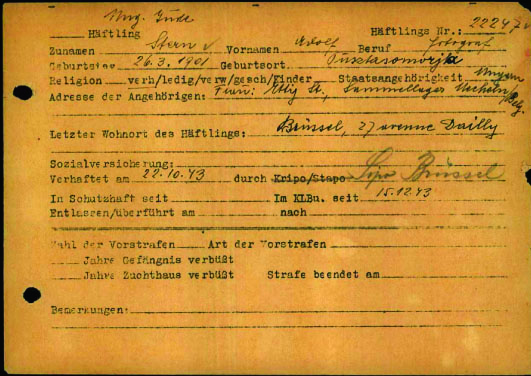 Ung. Jude
Häftling Häftlings Nr.: 22247
Zunamen Stern Vornamen Adolf Beruf Fotograf
Geburtstag 26.3.1901 Geburtsort.
Religion verh/ledig/verw/gesch/Kinder Staatsangehörigkeit Ungarn
Adresse der Angehörigen: Frau: Etty St., Sammellager Mecheln/Belg.
Letzter Wohnort des Häftlings: Brüssel, 27 avenue Dailly
Sozialversicherung:
Verhaftet am 22.10.43 durch Kripo/Stapo Sipo Brüssel
In Schutzhaft seit Im KLBu. seit 15.12.43
Entlassen/überführt am nach
Zahl der Vorstrafen Art der Vorstrafen
Jahre Gefängnis verbüßt
Jahre Zuchthaus verbüßt Strafe beendet am
Bemerkungen: